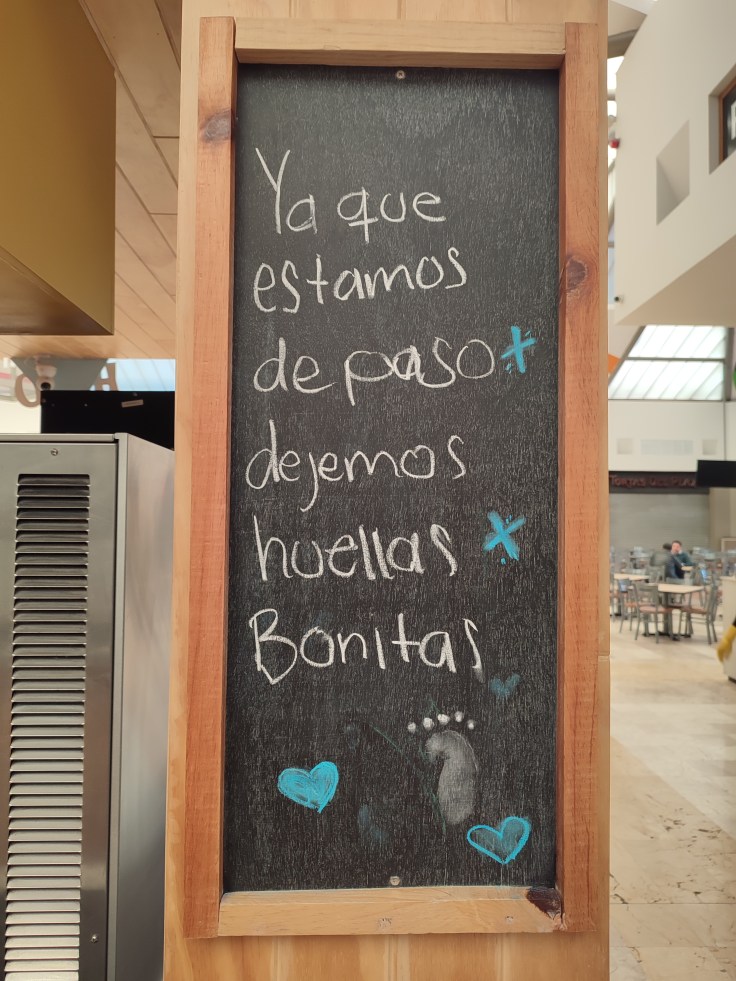 Ya que
estamos
de paso
dejemos
huellas
Bonitas